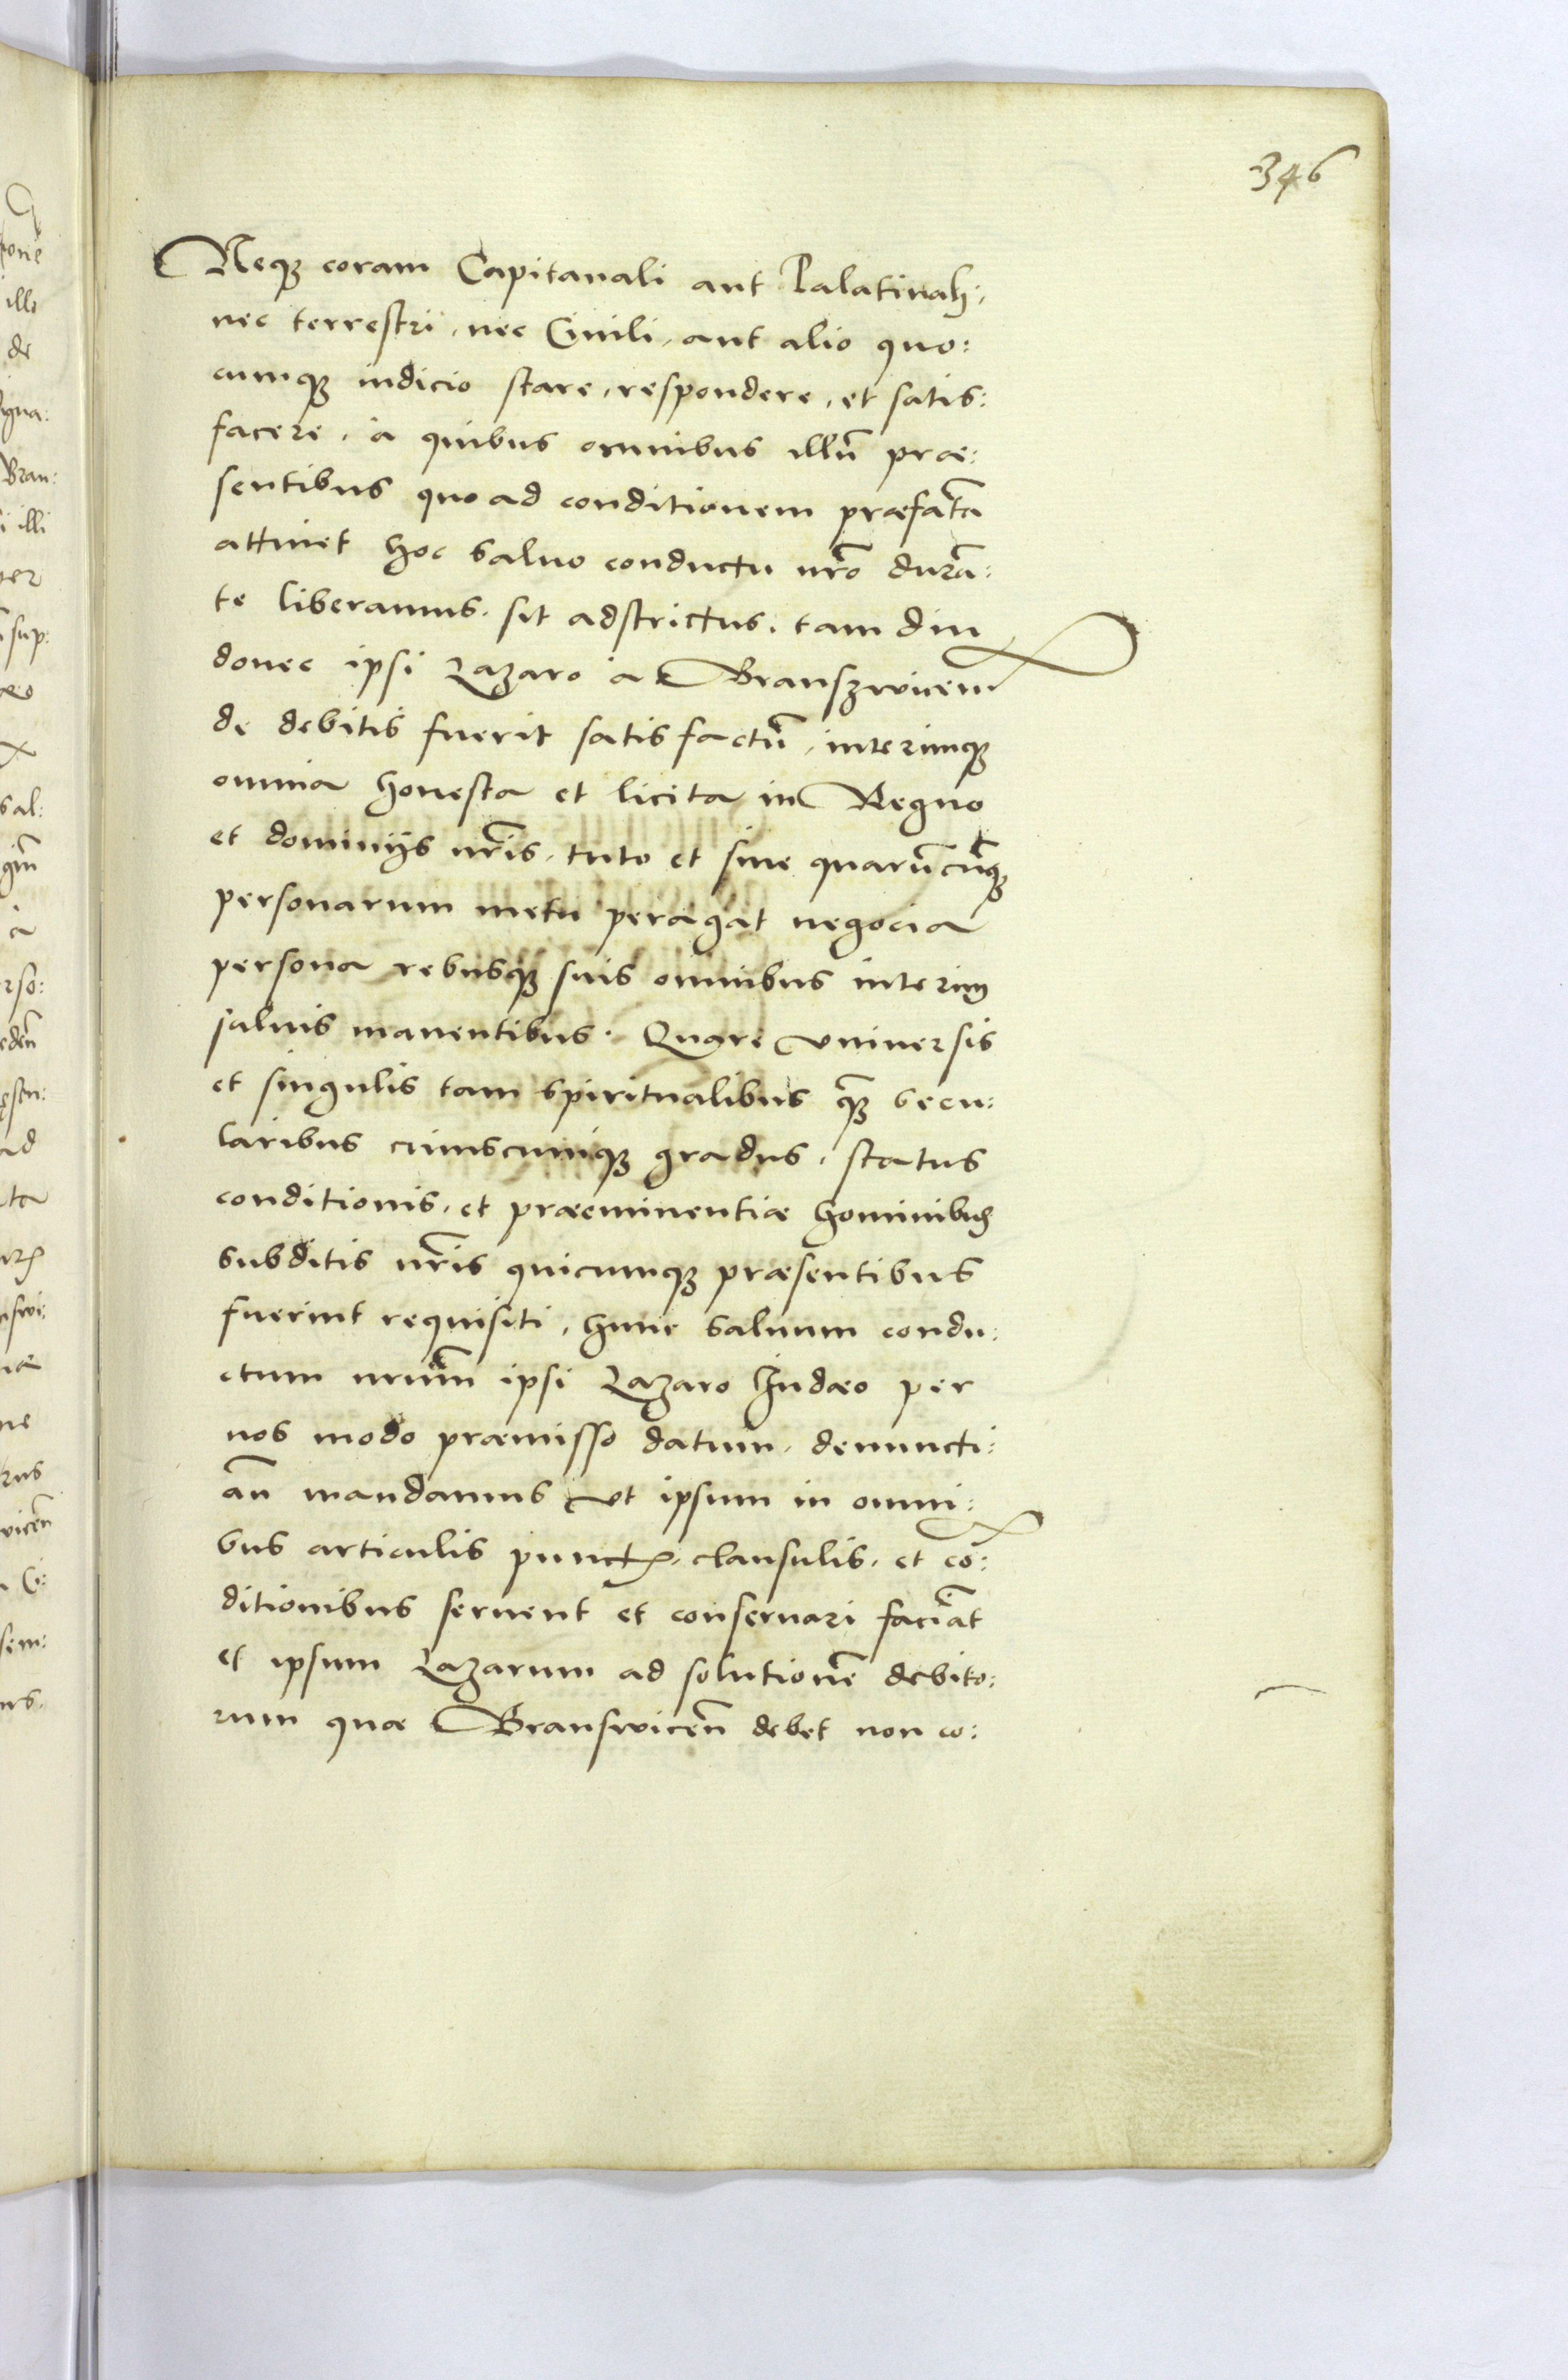 346
Neq₃ coram Capitanali aut Palatinali,
nec terrestri, nec Ciuili, aut alio quo:
cumq₃ iudicio stare, respondere, et satis:
facere, à quibus omnibus illū præ:
sentibus quo ad conditionem præfatā
attinet hoc saluo conductu nr̄o durā:
te liberamus. sit adstrictus. tam diu
donec ipsi Lazaro à Branszwicen̄
de debitis fuerit satis factū, interimq₃
omnia honesta et licita in Regno
et dominijs nr̄is, tuto et sine quarūcūq₃
personarum metu peragat negocia
persona rebusq₃ suis omnibus interim
saluis manentibus. Quare vniuersis
et singulis tam spiritualibus q̄₃ secu:
laribus cuiuscumq₃ gradus, status
conditionis, et præeminentiæ hominibus
subditis nr̄is quicumq₃ præsentibus
fuerint requisiti, hunc saluum condu:
ctum nrūm ipsi Lazaro Iudæo per
nos modo præmisso datum, denuncti:
an̄ mandamus vt ipsum in omni:
bus articulis punctꝭ, clausulis, et cō:
ditionibus seruent et conseruari faciāt
et ipsum Lazarum ad solutionē debito:
rum quæ Branswicen̄ debet non co: